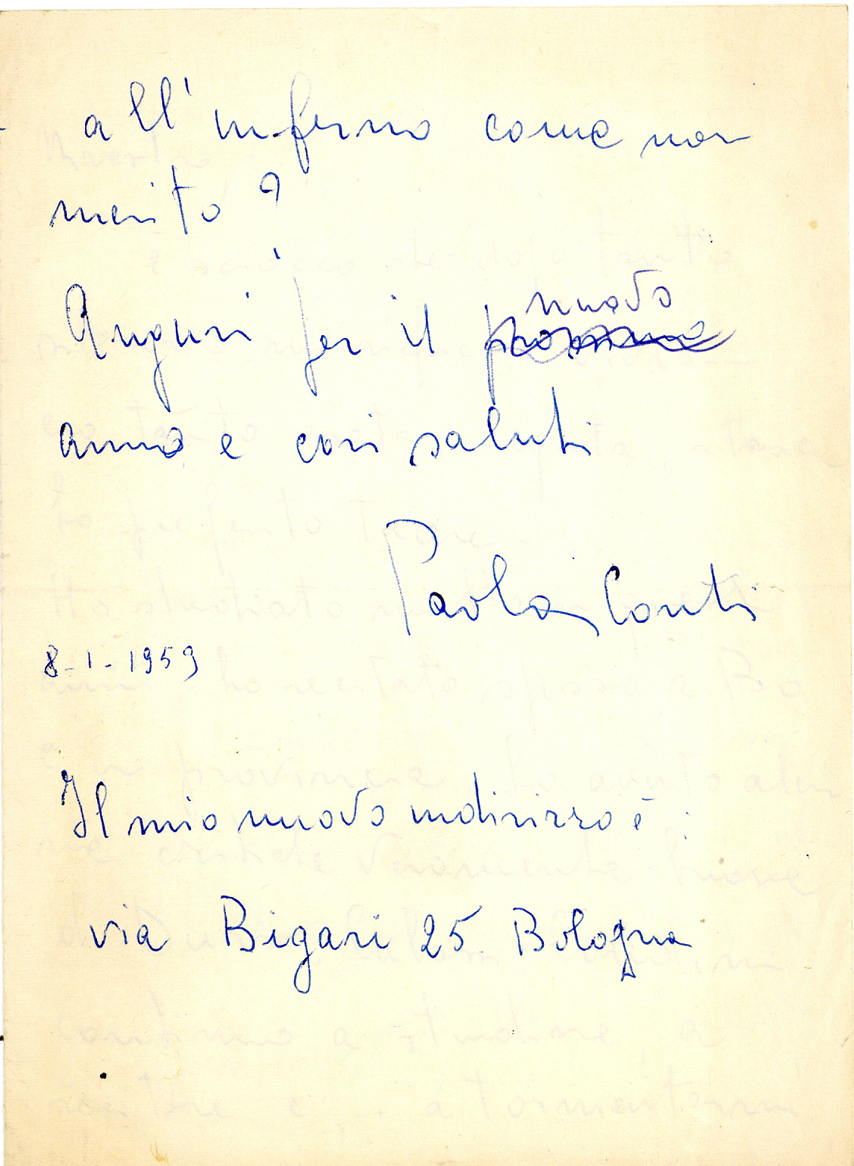 all'inferno come non
merito?
Auguri per il prossimo nuovo
anno e cari saluti
Paola Conti
8-1-1959
Il mio nuovo indirizzo è:
via Bigari 25 Bologna